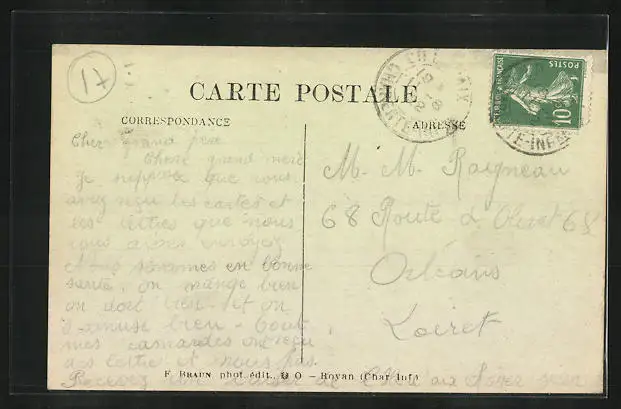 17
CARTE POSTALE
CORRESPONDANCE
ADRESSE
POSTES
10
Cher grand père
Chère grand mère
Je suppose que vous
avez reçu les cartes et
les lettres que nous
vous avons envoyez
et nous sommes en bonne
santé, on mange bien
on dort bien et on
s'amuse bien - tout
mes camarades ont reçu
des lettre et nous pas.
Recevez un baiser de
M. M. Raigneau
68 Route d'Olivet 68
Orléans
Loiret
F. BRAUN phot. édit., D O - Royan (Char Inf)